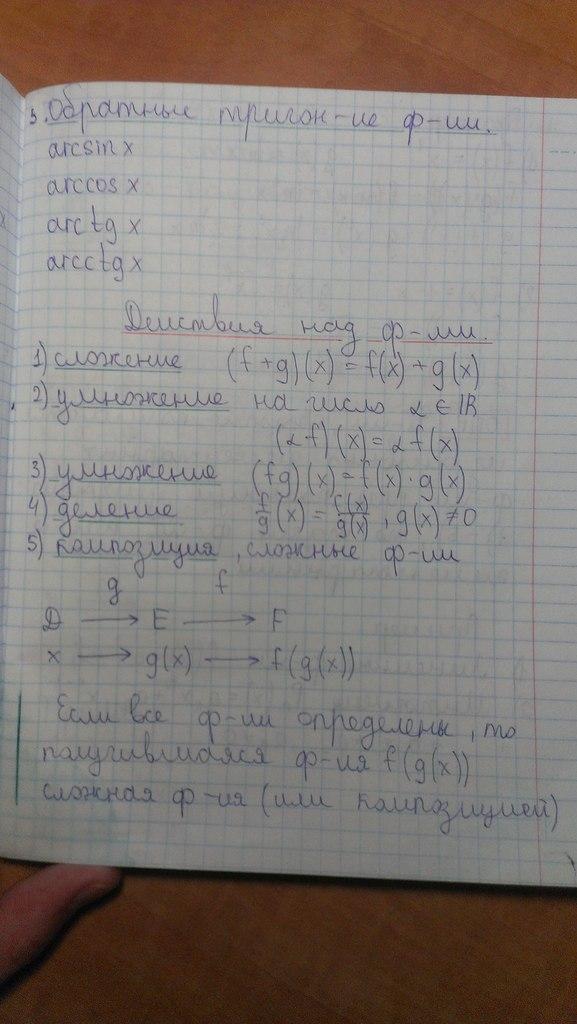 3. Обратные тригон-ие ф-ии.
arcsin x
arccos x
arctg x
arcctg x
Действия над ф-ми.
1) сложение (f+g)(x)=f(x)+g(x)
2) умножение на число α∈ℝ
(αf)(x)=αf(x)
3) умножение (fg)(x)=f(x)·g(x)
4) деление f/g(x)=f(x)/g(x), g(x)≠0
5) композиция, сложные ф-ии
g f
D → E → F
x → g(x) → f(g(x))
Если все ф-ии определены, то
получившаяся ф-ия f(g(x))
сложная ф-ия (или композицией)